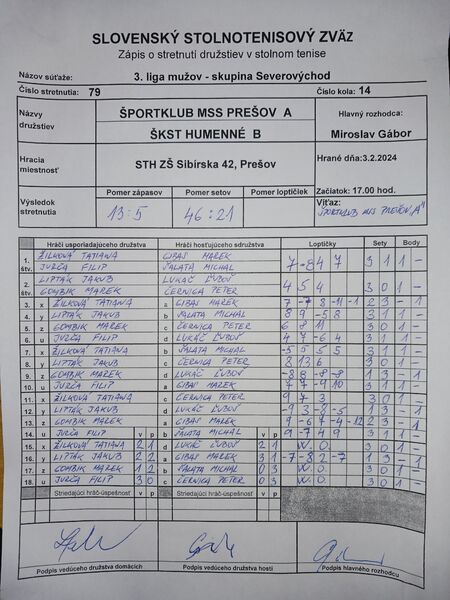 SLOVENSKÝ STOLNOTENISOVÝ ZVÄZ
Zápis o stretnutí družstiev v stolnom tenise
Názov súťaže: 3. liga mužov - skupina Severovýchod
Číslo stretnutia: 79 Číslo kola: 14
Názvy družstiev ŠPORTKLUB MSS PREŠOV A Hlavný rozhodca:
ŠKST HUMENNÉ B Miroslav Gábor
Hracia miestnosť STH ZŠ Sibírska 42, Prešov Hrané dňa:3.2.2024
Pomer zápasov Pomer setov Pomer loptičiek Začiatok: 17.00 hod.
Výsledok stretnutia 13:5 46:21 Víťaz: ŠPORTKLUB MSS PREŠOV "A"
Hráči usporiadajúceho družstva Hráči hosťujúceho družstva Loptičky Sety Body
1. štv. ŽILKOVÁ TATIANA GIBAS MAREK 7 -8 4 7 3 1 1 -
JURČA FILIP SALATA MICHAL
2. štv. LIPTÁK JAKUB LUKÁČ ĽUBOŠ 4 5 4 3 0 1 -
GOMBIK MAREK ČERNICA PETER
3. x ŽILKOVÁ TATIANA a GIBAS MAREK 2 3 - 1
4. y LIPTÁK JAKUB b SALATA MICHAL 8 9 -5 8 3 1 1 -
5. z GOMBIK MAREK c ČERNICA PETER 6 8 11 3 0 1 -
6. u JURČA FILIP d LUKÁČ ĽUBOŠ 4 7 -6 4 3 1 1 -
7. x ŽILKOVÁ TATIANA b SALATA MICHAL -5 5 5 5 3 1 1 -
8. y LIPTÁK JAKUB c ČERNICA PETER 8 13 6 3 0 1 -
9. z GOMBIK MAREK d LUKÁČ ĽUBOŠ 1 3 - 1
10. u JURČA FILIP a GIBAS MAREK 7 7 -9 10 3 1 1 -
11. x ŽILKOVÁ TATIANA c ČERNICA PETER 9 7 3 3 0 1 -
12. y LIPTÁK JAKUB d LUKÁČ ĽUBOŠ -9 3 -8 -5 1 3 - 1
13. z GOMBIK MAREK a GIBAS MAREK 9 -6 7 -4 -12 2 3 - 1
14. u JURČA FILIP v p b SALATA MICHAL v p 9 -7 4 9 3 1 1 -
15. x ŽILKOVÁ TATIANA 2 1 d LUKÁČ ĽUBOŠ 2 1 W.O. 3 0 1 -
16. y LIPTÁK JAKUB 2 2 a GIBAS MAREK 3 1 -7 -8 2 -7 1 3 - 1
17. z GOMBIK MAREK 1 2 b SALATA MICHAL 0 3 W.O. 3 0 1 -
18. u JURČA FILIP 3 0 c ČERNICA PETER 0 3 W.O. 3 0 1 -
Striedajúci hráč-úspešnosť v p Striedajúci hráč-úspešnosť v p
Podpis vedúceho družstva domácich Podpis vedúceho družstva hostí Podpis hlavného rozhodcu